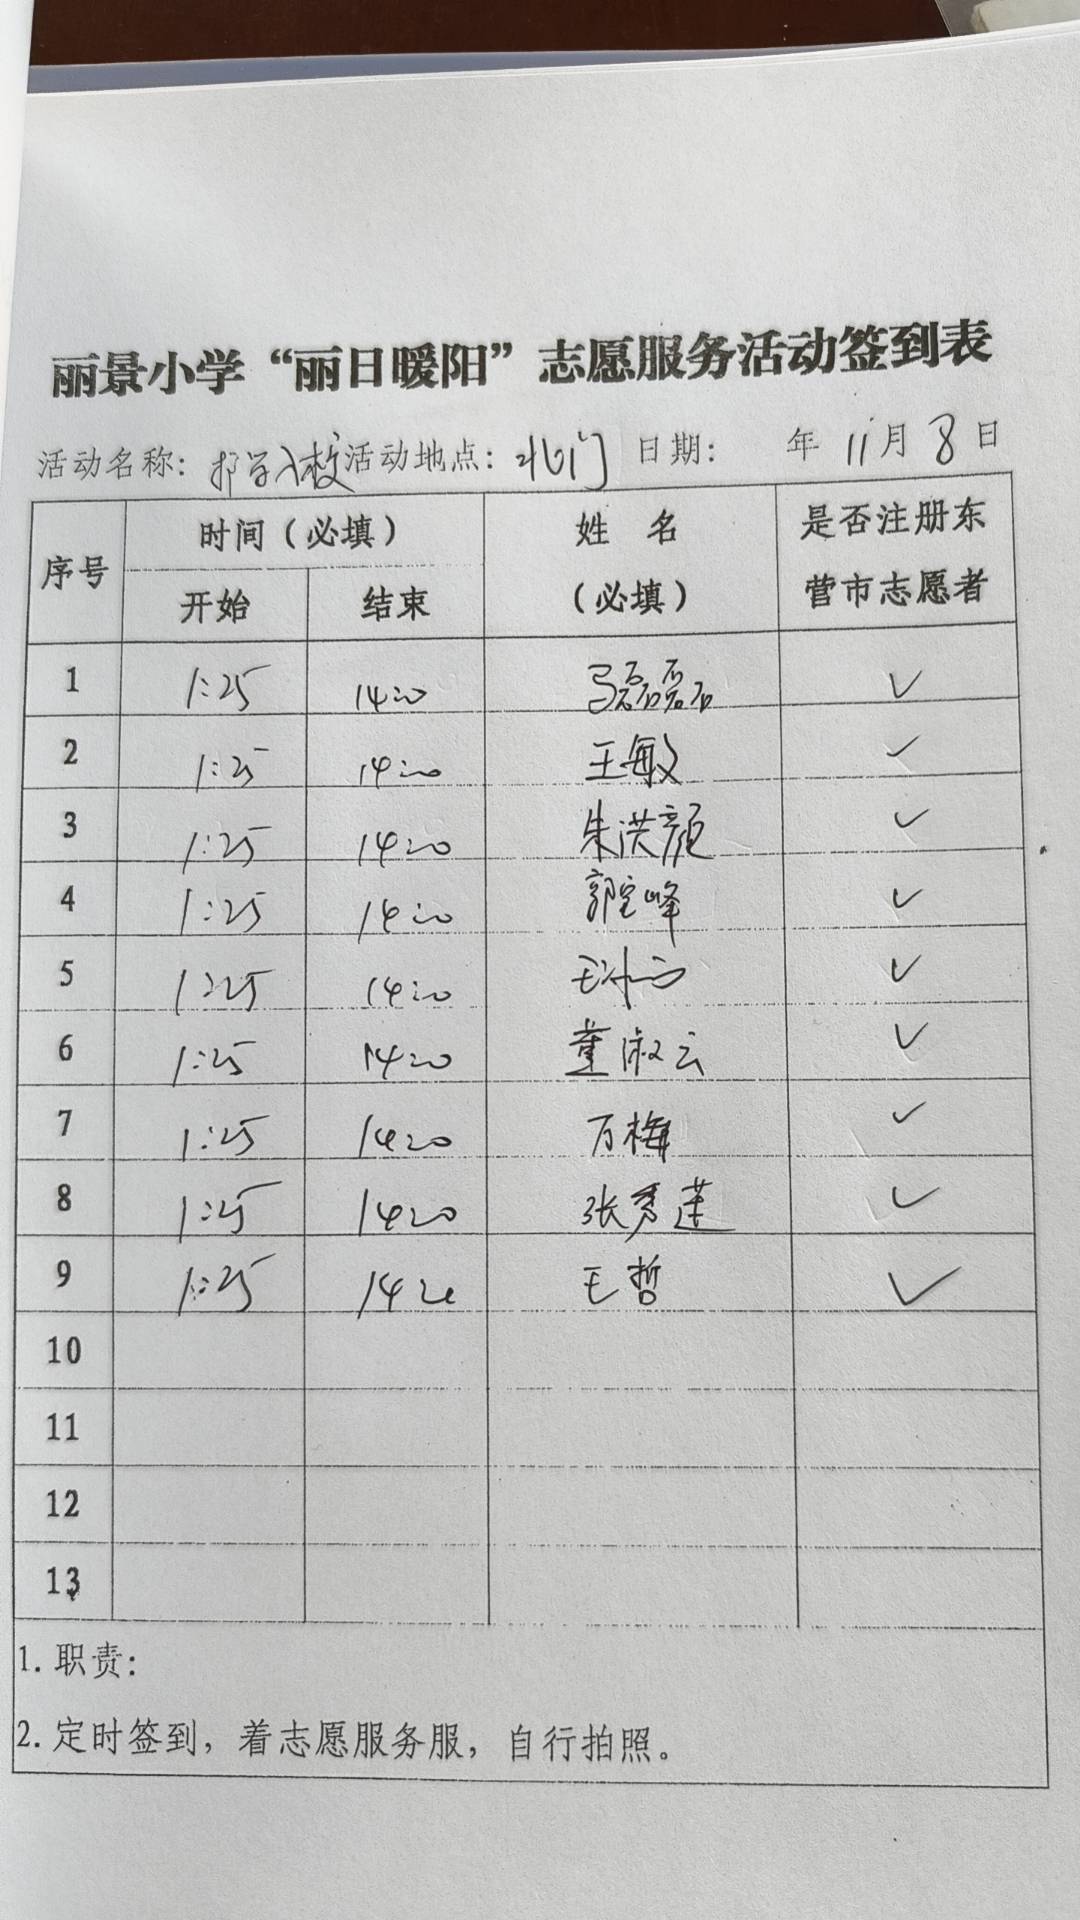 丽景小学“丽日暖阳”志愿服务活动签到表
活动名称: 护学入校 活动地点: 北门 日期: 年 11 月 8 日
序号 时间(必填) 姓 名 (必填) 是否注册东营市志愿者
开始 结束
1 1:25 14:20 马磊磊 ✓
2 1:25 14:20 王敏 ✓
3 1:25 1420 朱洪颜 ✓
4 1:25 14:20 郭宝峰 ✓
5 1:25 14:20 ✓
6 1:25 1420 董淑云 ✓
7 1:25 1420 万梅 ✓
8 1:25 1420 张秀莲 ✓
9 1:25 1420 王哲 ✓
10
11
12
13
1. 职责:
2. 定时签到，着志愿服务服，自行拍照。